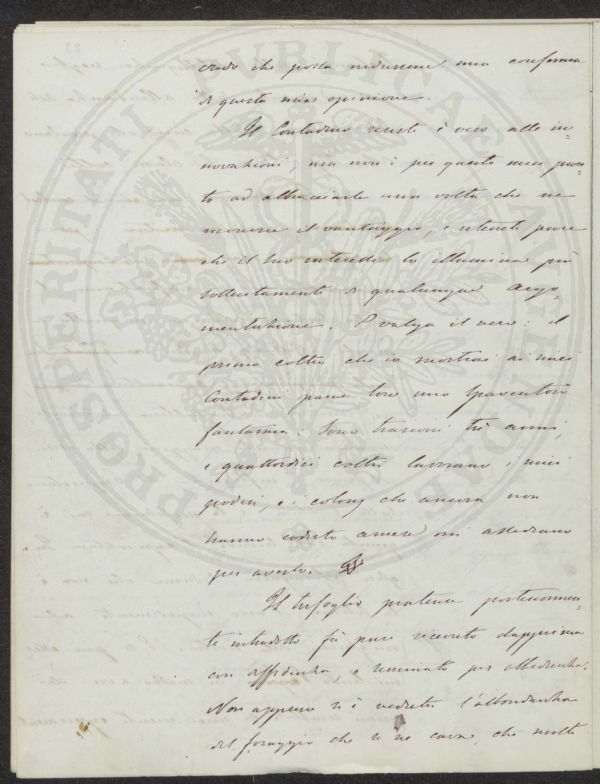 credo che possa ridursene una conferma
di questa mia opinione.
Il Contadino resiste è vero alle in-
novazioni, ma non è per questo men pron-
to ad abbracciarle una volta che ne
riconosce il vantaggio, e ritenete pure
che il suo interesse lo illumina più
sollecitamente di qualunque argo-
mentazione. E valga il vero: il
primo coltro che io mostrai ai miei
Contadini parve loro uno spaventoso
fantasma: Sono trascorsi tre anni,
e quattordici coltri lavorano i miei
poderi, e i coloni che ancora non
hanno codesto arnese mi assediano
per averlo.
Il trifoglio pratense posteriormen-
te introdotto fù pure ricevuto dapprima
con diffidenza, e seminato per obbedienza.
Non appena si è veduta l'abbondanza
del foraggio che se ne cava, che molti
PROSPERITATI PVBLICAE AVGENDAE